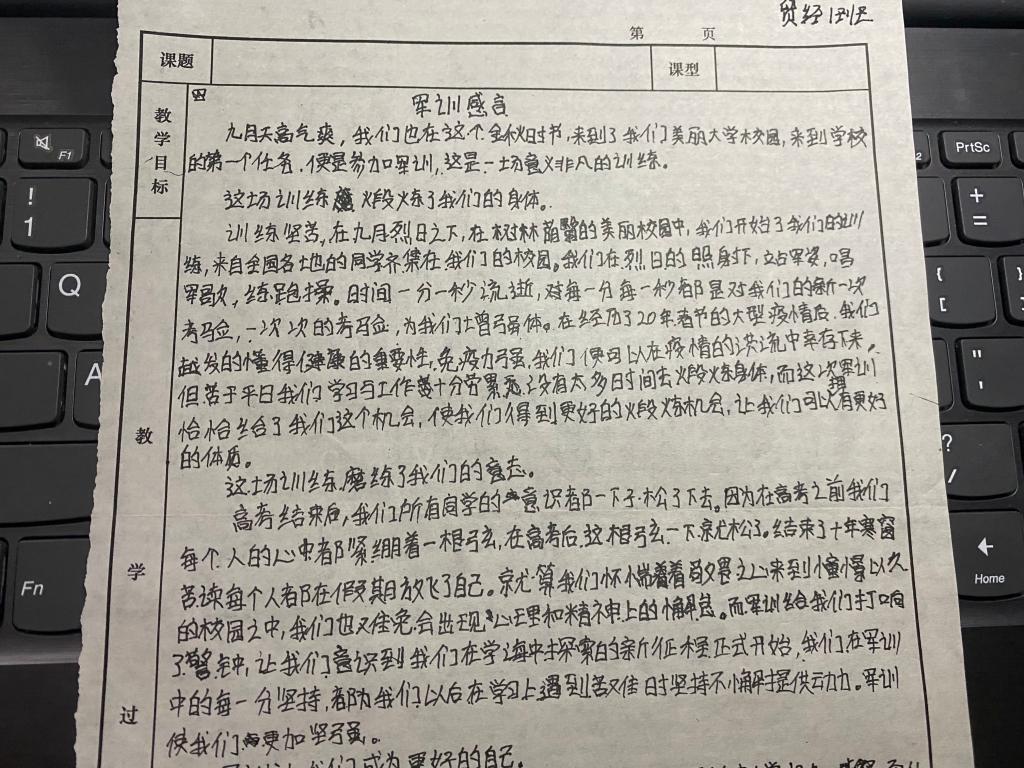 贸经
第 页
课题
课型
教学目标
军训感言
九月天高气爽，我们也在这个金秋时节，来到了我们美丽大学校园，来到学校
的第一个任务，便是参加军训，这是一场意义非凡的训练。
这场训练煅炼了我们的身体。
训练坚苦，在九月烈日之下，在树林荫翳的美丽校园中，我们开始了我们的训
练，来自全国各地的同学齐集在我们的校园。我们在烈日的照射下，站军姿，唱
军歌，练跑操。时间一分一秒流逝，对每一分每一秒都是对我们的新一次
考验，一次次的考验，为我们增强体。在经历了20年春节的大型疫情后，我们
越发的懂得健康的重要性，免疫力强，我们便可以在疫情的洪流中幸存下来，
但苦于平日我们学习与工作十分劳累，没有太多时间去煅炼身体，而这次军训
恰恰给了我们这个机会，使我们得到更好的煅炼机会，让我们可以拥有更好
的体质。
这场训练磨练了我们的意志。
高考结束后，我们所有同学的意识都一下子松了下去。因为在高考之前我们
每个人的心中都紧绷着一根弦，在高考后，这根弦一下就松了。结束了十年寒窗
苦读每个人都在假期放飞了自己。就算我们怀惴着敬畏之心来到憧憬以久
的校园之中，我们也难免会出现心理和精神上的懈怠。而军训给我们打响
了警钟，让我们意识到我们在学海中探索的新征程正式开始，我们在军训
中的每一分坚持，都为我们以后在学习上遇到苦难时坚持不懈提供动力。军训
使我们更加坚强。
我们成为更好的自己。
教
学
过
F1
PrtSc
!
1
+
=
Q
{
[
A
"
?
/
Fn
Home